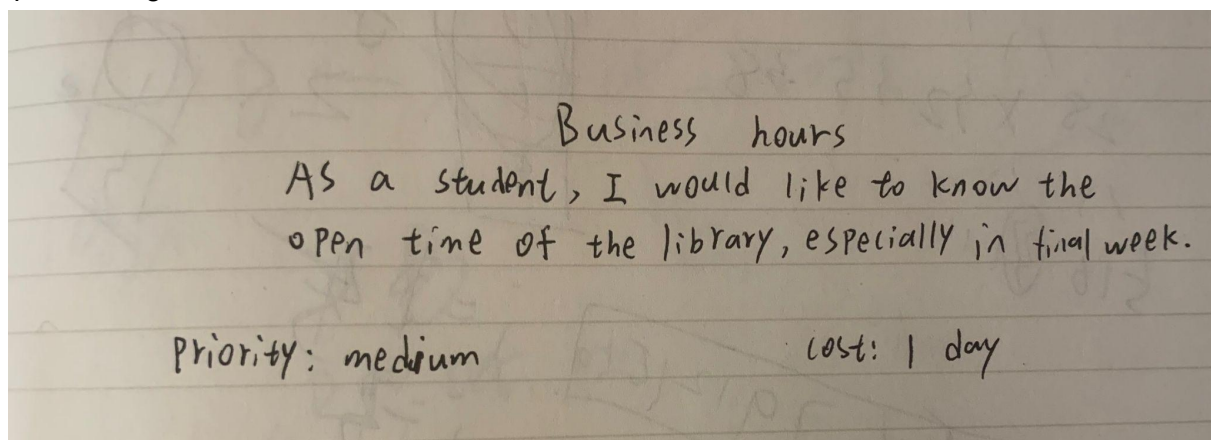 Business hours
As a student, I would like to know the
open time of the library, especially in final week.
Priority: medium cost: 1 day